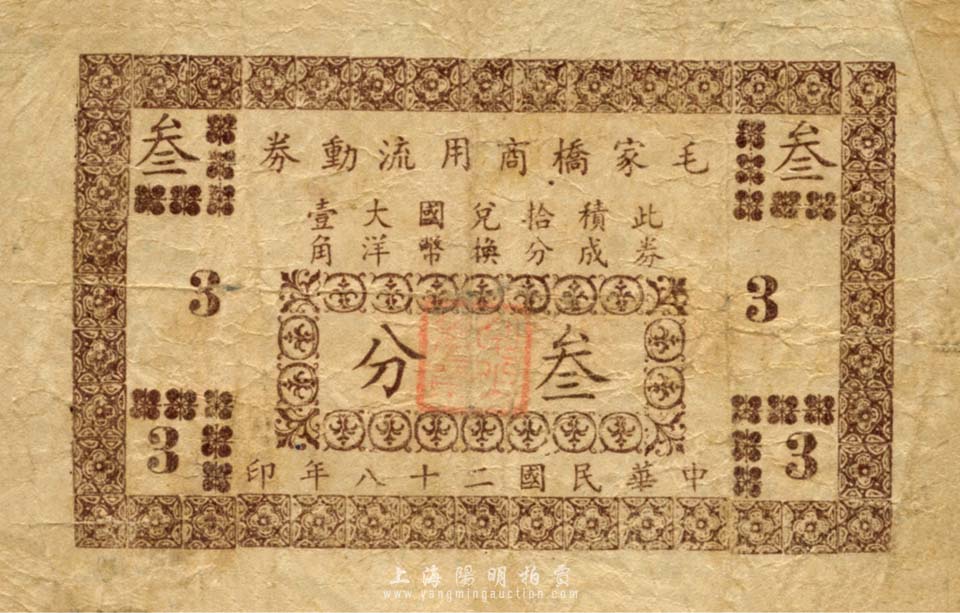 叁
叁
毛家橋商用流動券
此券積成拾分兌換國幣大洋壹角
3
3
叁分
3
3
中華民國二十八年印
上海陽明拍賣
www.yangmingauction.com